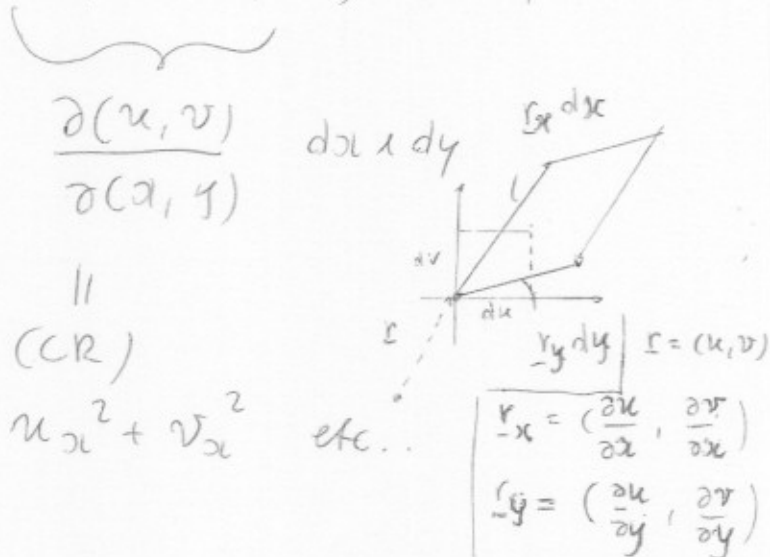 ∂(u, v)
∂(x, y)
dx ∧ dy
r_x dx
dv
du
r
r_y dy
r = (u, v)
||
(CR)
u_x² + v_x²
etc..
r_x = (∂u/∂x, ∂v/∂x)
r_y = (∂u/∂y, ∂v/∂y)